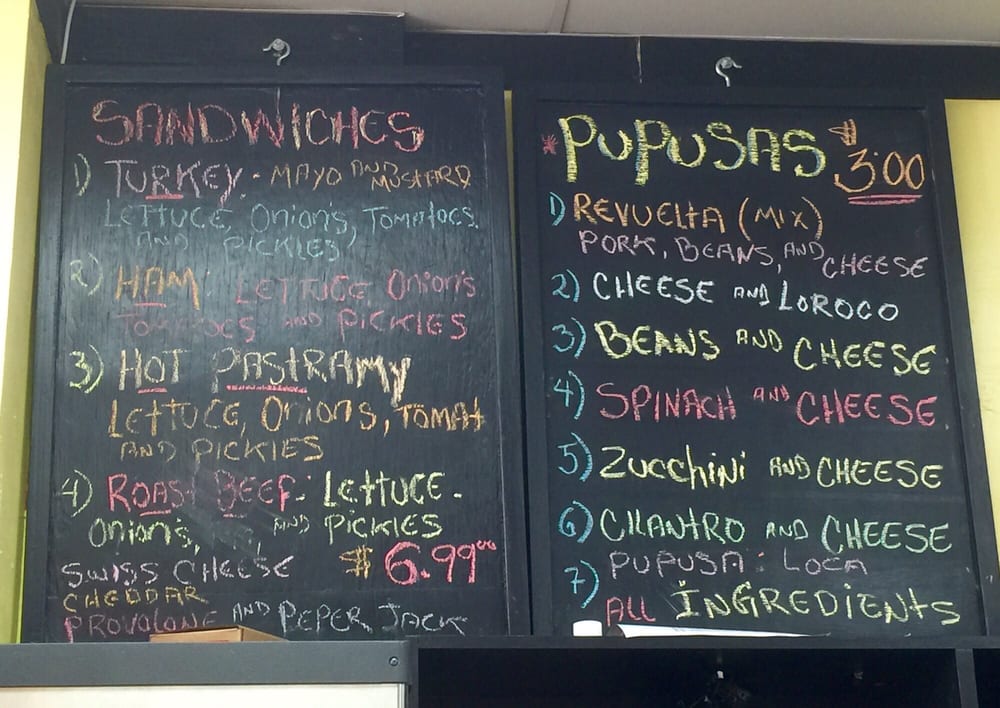 SANDWICHES
1) TURKEY - MAYO AND MUSTARD
LETTUCE, Onions, TOMATOES
AND PICKLES
2) HAM LETTUCE, Onions
TOMATOES AND PICKLES
3) HOT PASTRAMY
LETTUCE, Onions, TOMAT
AND PICKLES
4) ROAST BEEF: LETTUCE.
Onions, AND PICKLES
SWISS CHEESE $ 6.99
CHEDDAR
PROVOLONE AND PEPER JACK
* PUPUSAS $ 3:00
1) REVUELTA (MIX)
PORK, BEANS, AND CHEESE
2) CHEESE AND LOROCO
3) BEANS AND CHEESE
4) SPINACH AND CHEESE
5) ZUCCHINI AND CHEESE
6) CILANTRO AND CHEESE
PUPUSA: LOCA
7) ALL INGREDIENTS